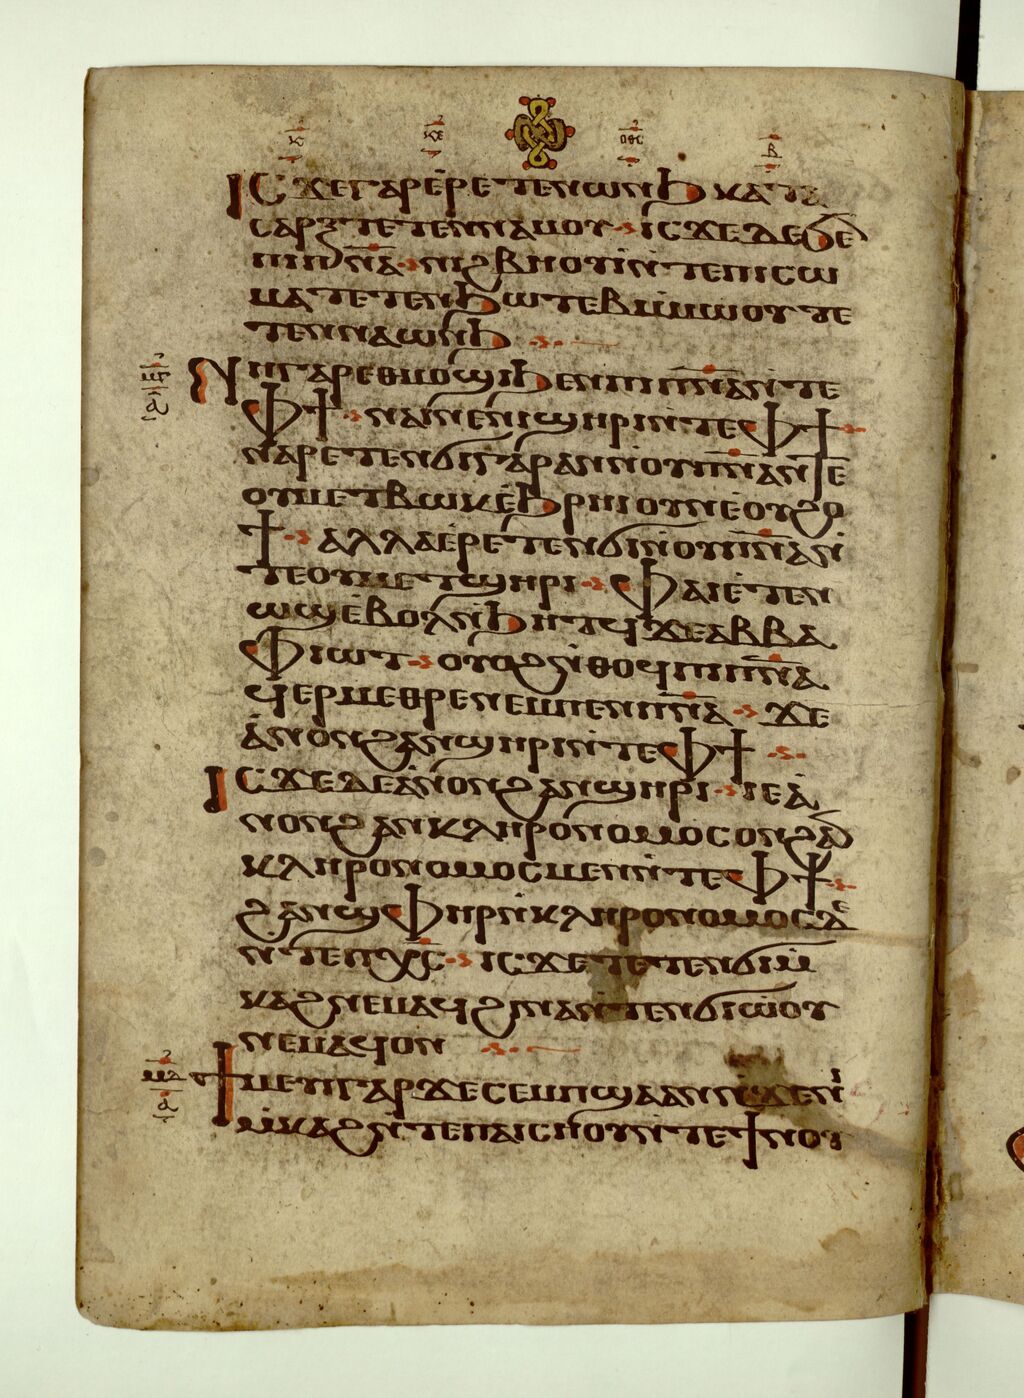 ⲕ ⲕⲉ ⲟⲑⲥ ⲃ
ⲓⲥϫⲉⲅⲁⲣⲉ̀ⲣⲉⲧⲉⲛⲱⲛϧ ⲕⲁⲧⲁ
ⲥⲁⲣⲝⲧⲉⲧⲉⲛⲛⲁⲙⲟⲩ ⲓⲥϫⲉⲇⲉϧⲉⲛ
ⲡⲓⲡ̅ⲛ̅ⲁ̅ ⲛⲓϩⲃⲏⲟⲩⲓ̀ⲛ̀ⲧⲉⲡⲓⲥⲱ
ⲙⲁⲧⲉⲧⲉⲛϧⲱⲧⲉⲃⲙ̀ⲙⲱⲟⲩⲧⲉ
ⲧⲉⲛⲛⲁⲱⲛϧ
ⲛⲏⲅⲁⲣⲉⲑⲙⲟϣⲓϧⲉⲛⲡⲓⲡ̅ⲛ̅ⲁ̅ⲛ̀ⲧⲉ
ⲫϯ ⲛⲁⲓⲛⲉⲛⲓϣⲏⲣⲓⲛ̀ⲧⲉⲫϯ
ⲛⲁⲣⲉⲧⲉⲛϭⲓⲅⲁⲣⲁⲛⲛ̀ⲟⲩⲡ̅ⲛ̅ⲁ̅ⲛ̀ⲧⲉ
ⲟⲩⲙⲉⲧⲃⲱⲕⲉ̀ϧⲣⲏⲓⲟⲛⲉ̀ⲟⲩϩⲟ
ϯ ⲁⲗⲗⲁⲉ̀ⲣⲉⲧⲉⲛϭⲓⲛ̀ⲟⲩⲡ̅ⲛ̅ⲁ̅ⲛ̀
ⲧⲉⲟⲩⲙⲉⲧϣⲏⲣⲓ ⲫⲁⲓⲉ̀ⲧⲉⲛ
ⲱϣⲉ̀ⲃⲟⲗⲛ̀ϧⲏⲧϥϫⲉⲁⲃⲃⲁ
ⲫⲓⲱⲧ ⲟⲩⲟϩⲛ̀ⲑⲟϥⲡⲓⲡ̅ⲛ̅ⲁ̅
ϥⲉⲣⲙⲉⲑⲣⲉⲛⲉⲙⲡⲉⲛⲡ̅ⲛ̅ⲁ̅ ϫⲉ
ⲁ̀ⲛⲟⲛϩⲁⲛϣⲏⲣⲓⲛ̀ⲧⲉⲫϯ
ⲓⲥϫⲉⲇⲉⲁ̀ⲛⲟⲛϩⲁⲛϣⲏⲣⲓ ⲓⲉⲁ̀
ⲛⲟⲛϩⲁⲛⲕⲗⲏⲣⲟⲛⲟⲙⲟⲥⲟⲛϩⲁⲛ
ⲕⲗⲏⲣⲟⲛⲟⲙⲟⲥⲙⲉⲛⲛ̀ⲧⲉⲫϯ
ϩⲁⲛϣⲫⲏⲣⲛ̀ⲕⲗⲏⲣⲟⲛⲟⲙⲟⲥⲇⲉ
ⲛ̀ⲧⲉⲡⲭ̅ⲥ̅ ⲓⲥϫⲉⲧⲉⲧⲉⲛϭⲓⲙ̀
ⲕⲁϩⲛⲉⲙⲁϥϩⲓⲛⲁⲛ̀ⲧⲉⲛϭⲓⲱ̀ⲟⲩ
ⲛⲉⲙⲁϥⲟⲛ
ϯⲙⲉⲩⲓⲅⲁⲣϫⲉⲥⲉⲙⲡϣⲁⲁⲛⲛ̀ϫⲉⲛⲓ
ⲙ̀ⲕⲁϩⲛ̀ⲧⲉⲡⲁⲓⲥⲏⲟⲩⲛ̀ⲧⲉϯⲛⲟⲩ